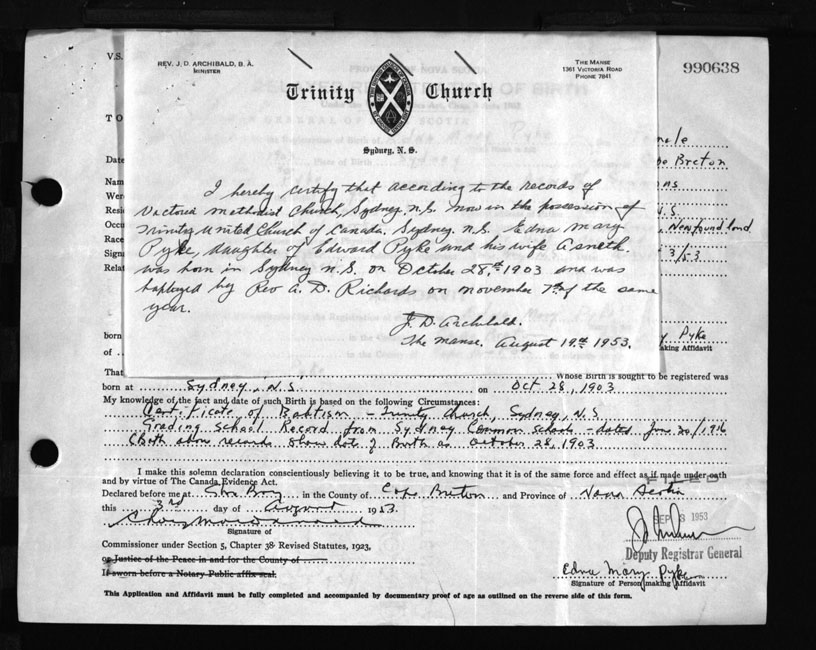 V.S.
REV. J. D. ARCHIBALD, B. A.
MINISTER
THE MANSE
1361 VICTORIA ROAD
PHONE 7841
990638
Trinity Church
Sydney, N. S.
TO
Date
Nam
Wer
Resi
Occu
Race
Signa
Relat
male
Breton
N.S.
Newfoundland
3/53
I hereby certify that according to the records of
Victoria Methodist Church, Sydney, N.S. now in the possession of
Trinity United Church of Canada, Sydney, N.S. Edna Mary
Pyke, daughter of Edward Pyke and his wife Asneth
was born in Sydney N.S. on October 28th 1903 and was
baptized by Rev A. D. Richards on November 7th of the same
year.
J. D. Archibald.
The Manse, August 19th 1953.
born
of
Pyke
aking Affidavit
That
whose Birth is sought to be registered was
born at Sydney, N.S. on Oct 28, 1903
My knowledge of the fact and date of such Birth is based on the following Circumstances:
Certificate of Baptism - Trinity Church, Sydney, N.S
Grading School Record from Sydney Common schools - dated June 30/1916
(Both above records show date of Birth as October 28, 1903
I make this solemn declaration conscientiously believing it to be true, and knowing that it is of the same force and effect as if made under oath
and by virtue of The Canada Evidence Act.
Declared before me at in the County of Cape Breton and Province of Nova Scotia
this 3rd day of August 1953.
Signature of
Commissioner under Section 5, Chapter 38 Revised Statutes, 1923,
or Justice of the Peace in and for the County of
If sworn before a Notary Public affix seal.
SEP 3 1953
Deputy Registrar General
Edna Mary Pyke
Signature of Person making Affidavit
This Application and Affidavit must be fully completed and accompanied by documentary proof of age as outlined on the reverse side of this form.